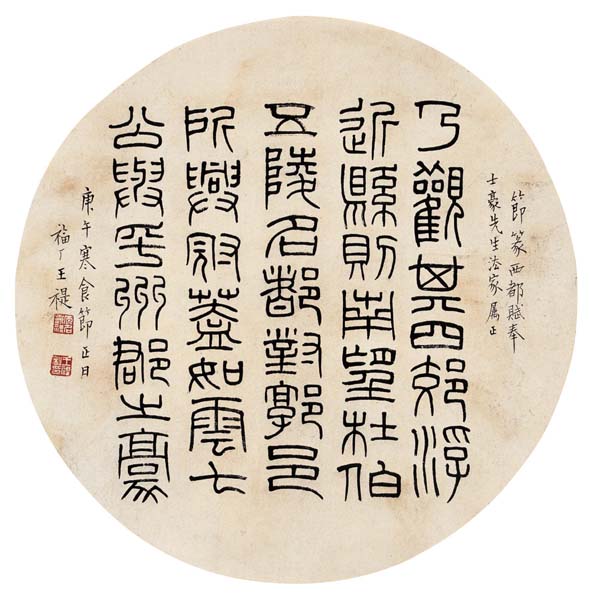 節篆西都賦奉
士豪先生法家属正
乃觀其四郊浮
近縣則南望杜伯
五陵名都對郭邑
所興冠蓋如雲七
公與乎州郡之豪
庚午寒食節正日
福厂王禔